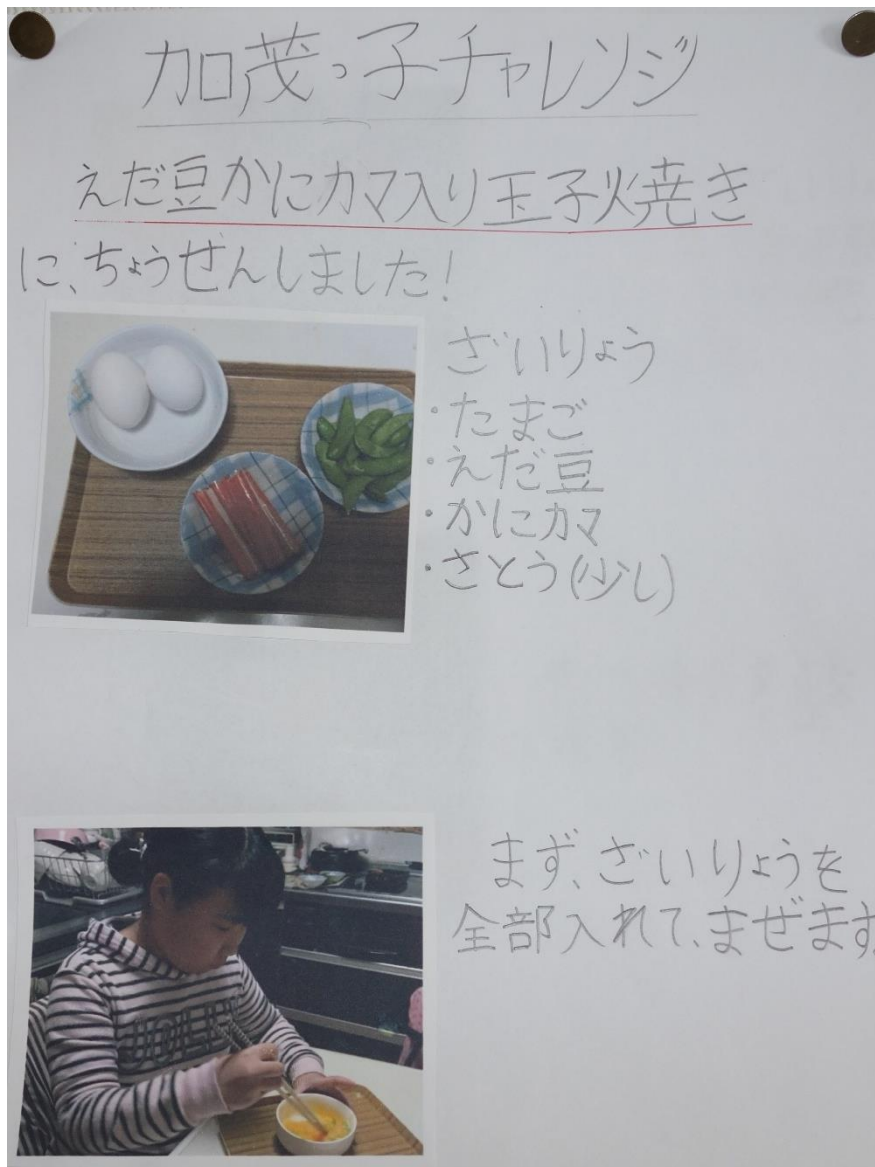 加茂っ子チャレンジ
えだ豆かにカマ入り玉子焼き
に、ちょうぜんしました!
ざいりょう
・たまご
・えだ豆
・かにカマ
・さとう(少し)
まず、ざいりょうを
全部入れて、まぜます。